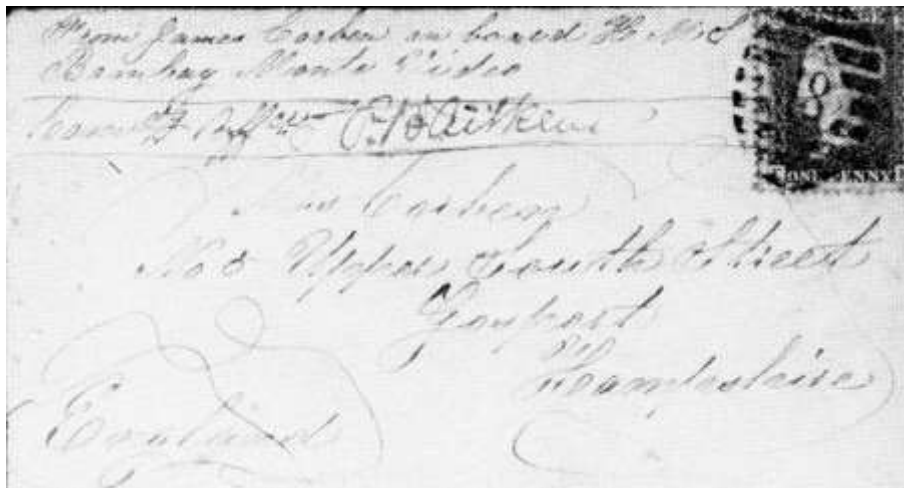 From James Corben on board H.M.S
Bombay Monte Video
Com
Corben
No 5 Upper South Street
Gosport
Hampshire
England
ONE PENNY